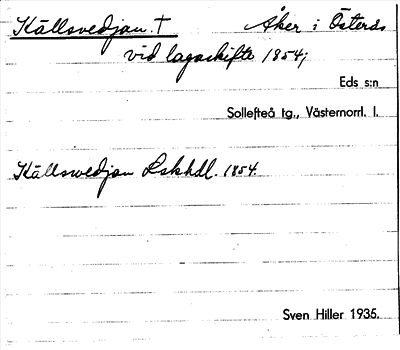 Källsvedjan. † Åker i Österås
vid lagaskifte 1854;
Eds s:n
Sollefteå tg., Västernorrl. l.
Källswedjan Lskhdl. 1854.
Sven Hiller 1935.